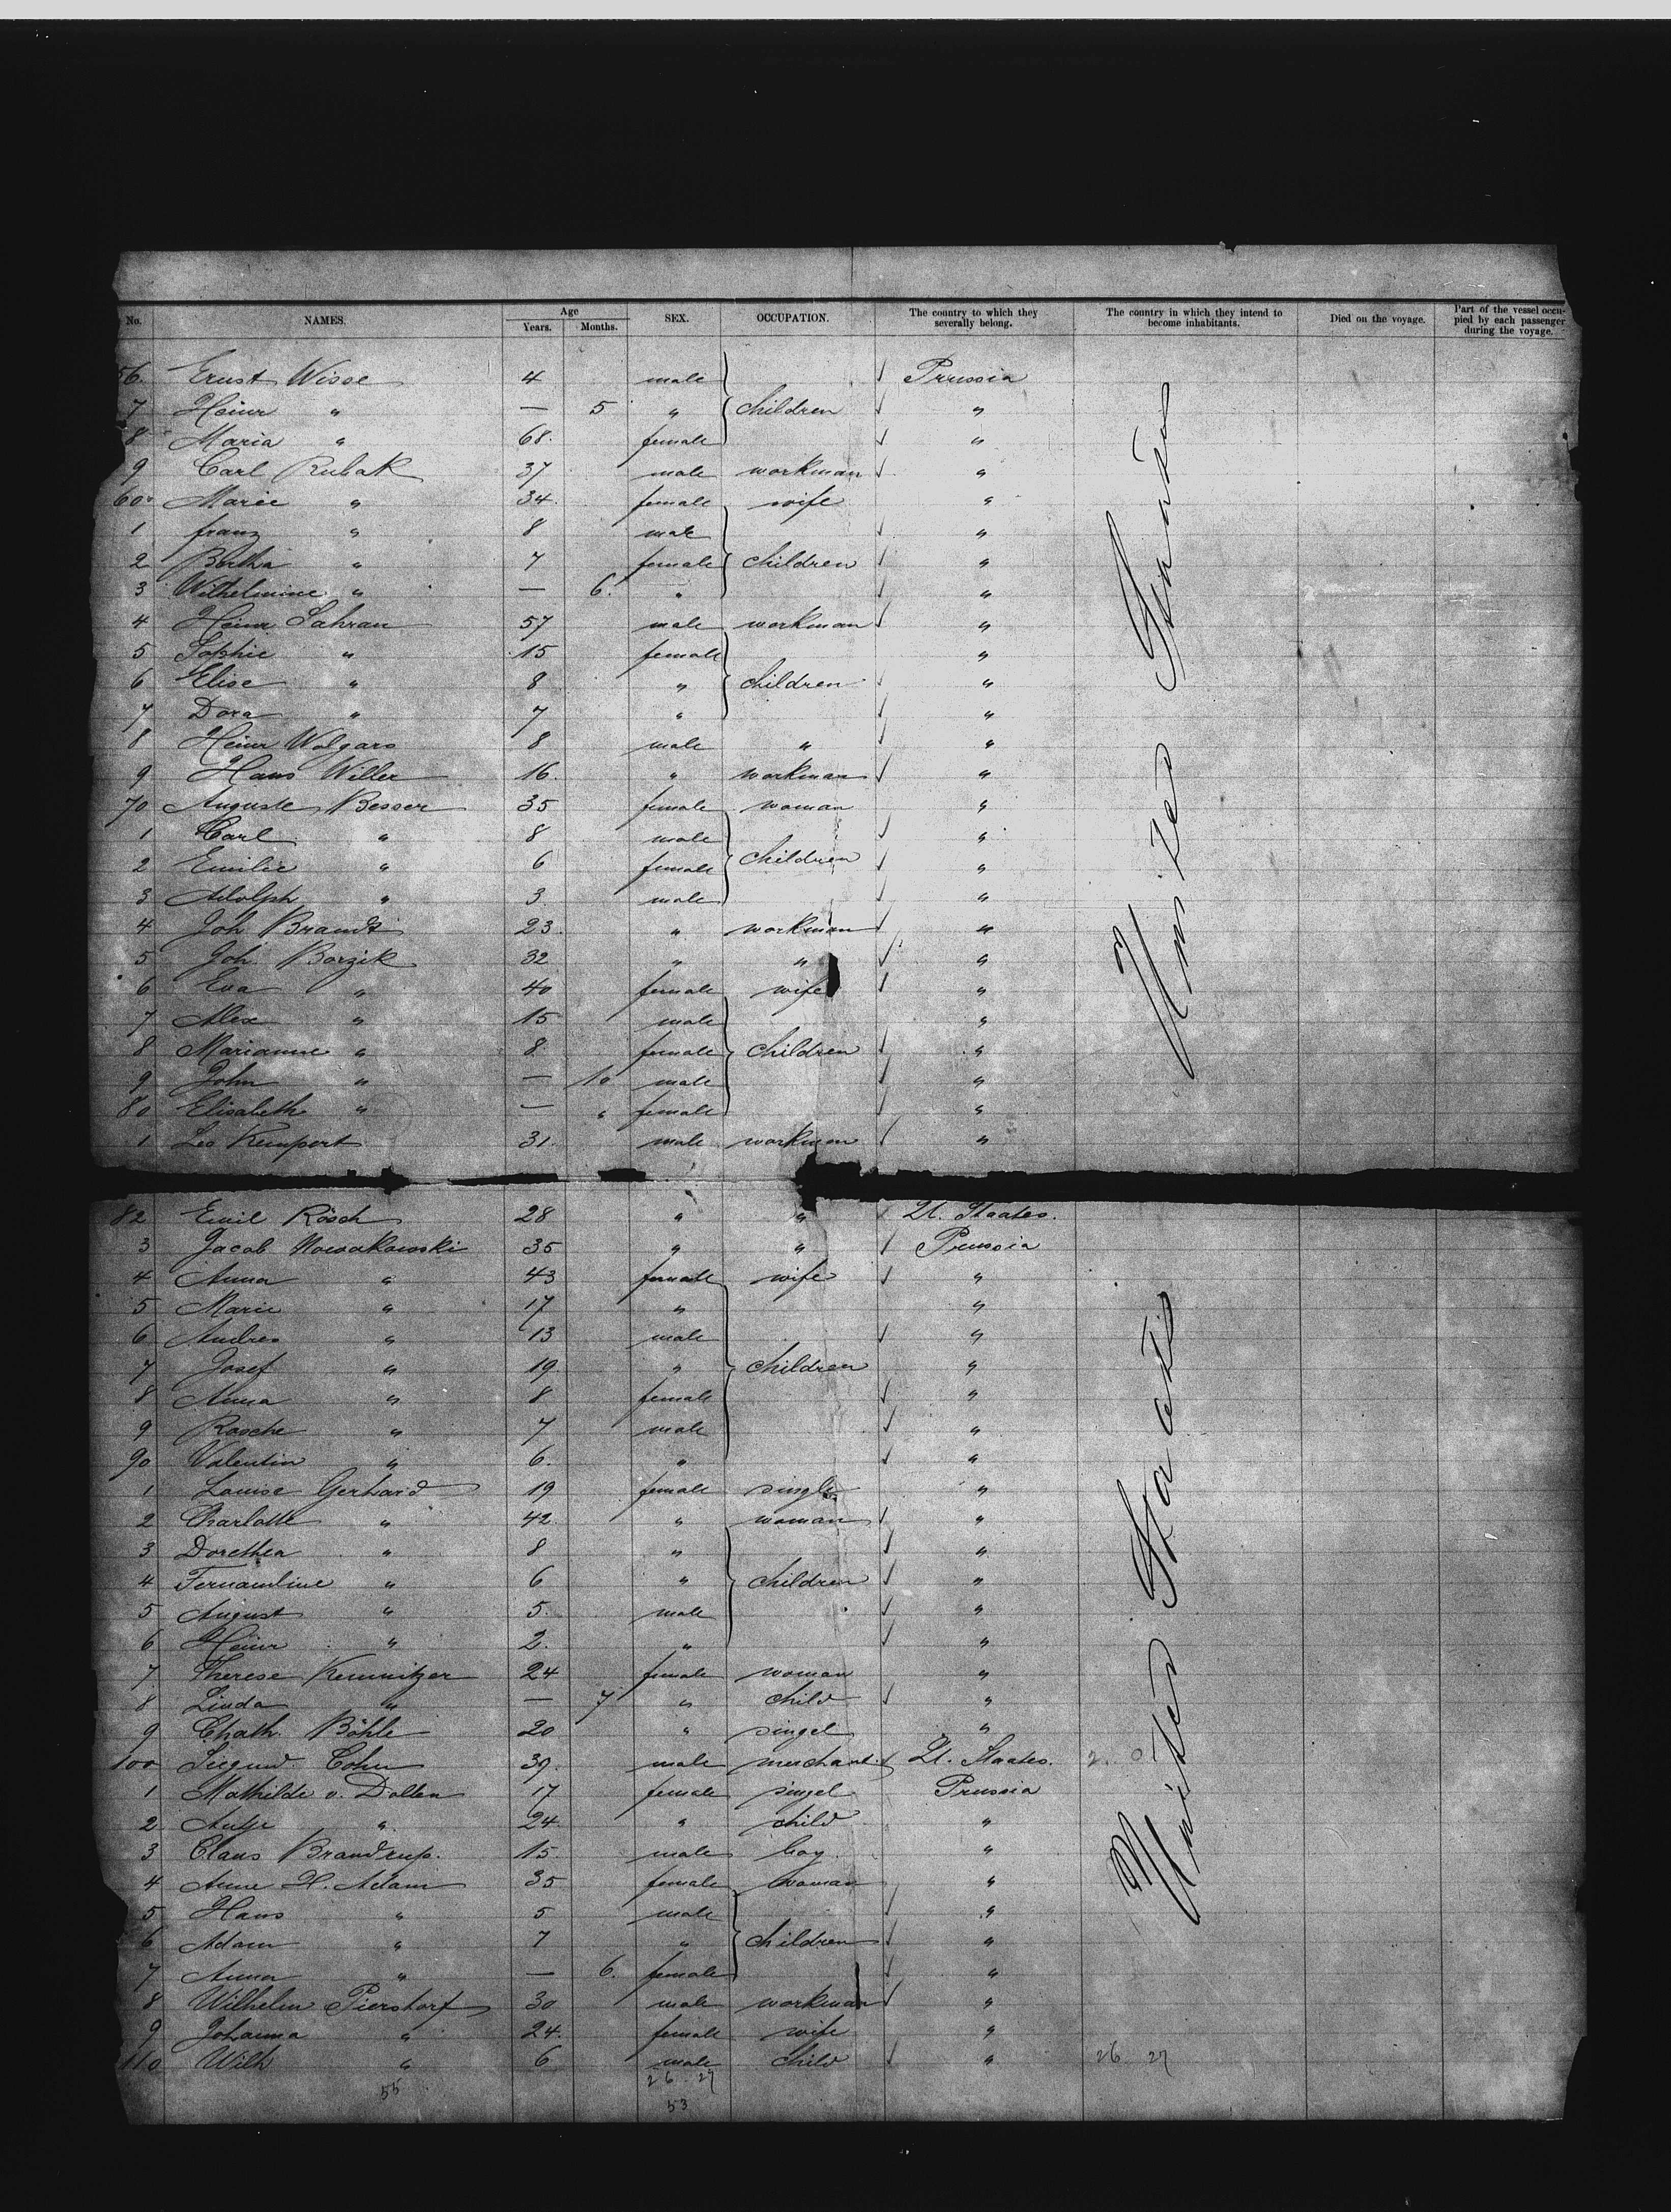 No. NAMES. Age Years. Months. SEX. OCCUPATION. The country to which they severally belong. The country in which they intend to become inhabitants. Died on the voyage. Part of the vessel occupied by each passenger during the voyage.
56. Ernst Wisse 4 male Prussia
7 Heinr " — 5 " children "
8 Maria " 68. female "
9 Carl Rubak 37 male workman "
60 Marie " 34. female wife "
1 franz " 8 male "
2 Bertha " 7 female children "
3 Wilhelmine " — 6. " "
4 Heinr Sahran 57 male workman "
5 Sophie " 15 female "
6 Elise " 8 " children "
7 Dora " 7 " "
8 Heinr Wolgars 8 male " "
9 Hans Willer 16. " workman "
70 Auguste Besser 35 female woman "
1 Carl " 8 male "
2 Emilie " 6 female children "
3 Adolph " 3 male "
4 Joh Brandt 23. " workman "
5 Joh Borzik 32 " " "
6 Eva " 40 female wife "
7 Alex " 15 male "
8 Marianne " 8. female children "
9 John " — 10 male "
80 Elisabeth " — " female "
1 Leo Kempert 31. male workman "
United States
82 Emil Rösch 28 " " U. Staates.
3 Jacob Nowakowski 35 " " Prussia
4 Anna " 43 female wife "
5 Marie " 17 " "
6 Andres " 13 male "
7 Josef " 19 " children "
8 Anna " 8 female "
9 Rosche " 7 male "
90 Valentin " 6. " "
1 Louise Gerhard 19 female single "
2 Charlotte " 42. " woman "
3 Dorethea " 8 " "
4 Fernandine " 6 " children "
5 August " 5. male "
6 Heinr " 2. " "
7 Therese Kemnitzer 24 female woman "
8 Linda " — 7 " child "
9 Chath. Böhle 20 " singel "
100 Siegmd. Cohn 39. male merchant U. Staates. 2. 0
1 Mathilde v. Dollen 17 female singel Prussia
2 Antje " 24 " child "
3 Claus Brandrup. 15. male boy. "
4 Anne H. Adam 35 female woman "
5 Hans " 5 male "
6 Adam " 7 " children "
7 Anna " — 6. female "
8 Wilhelm Pierstorf 30 male workman "
9 Johanna " 24. female wife "
110 Wilh " 6 male child " 26 27
United Staates
55 26 27
53